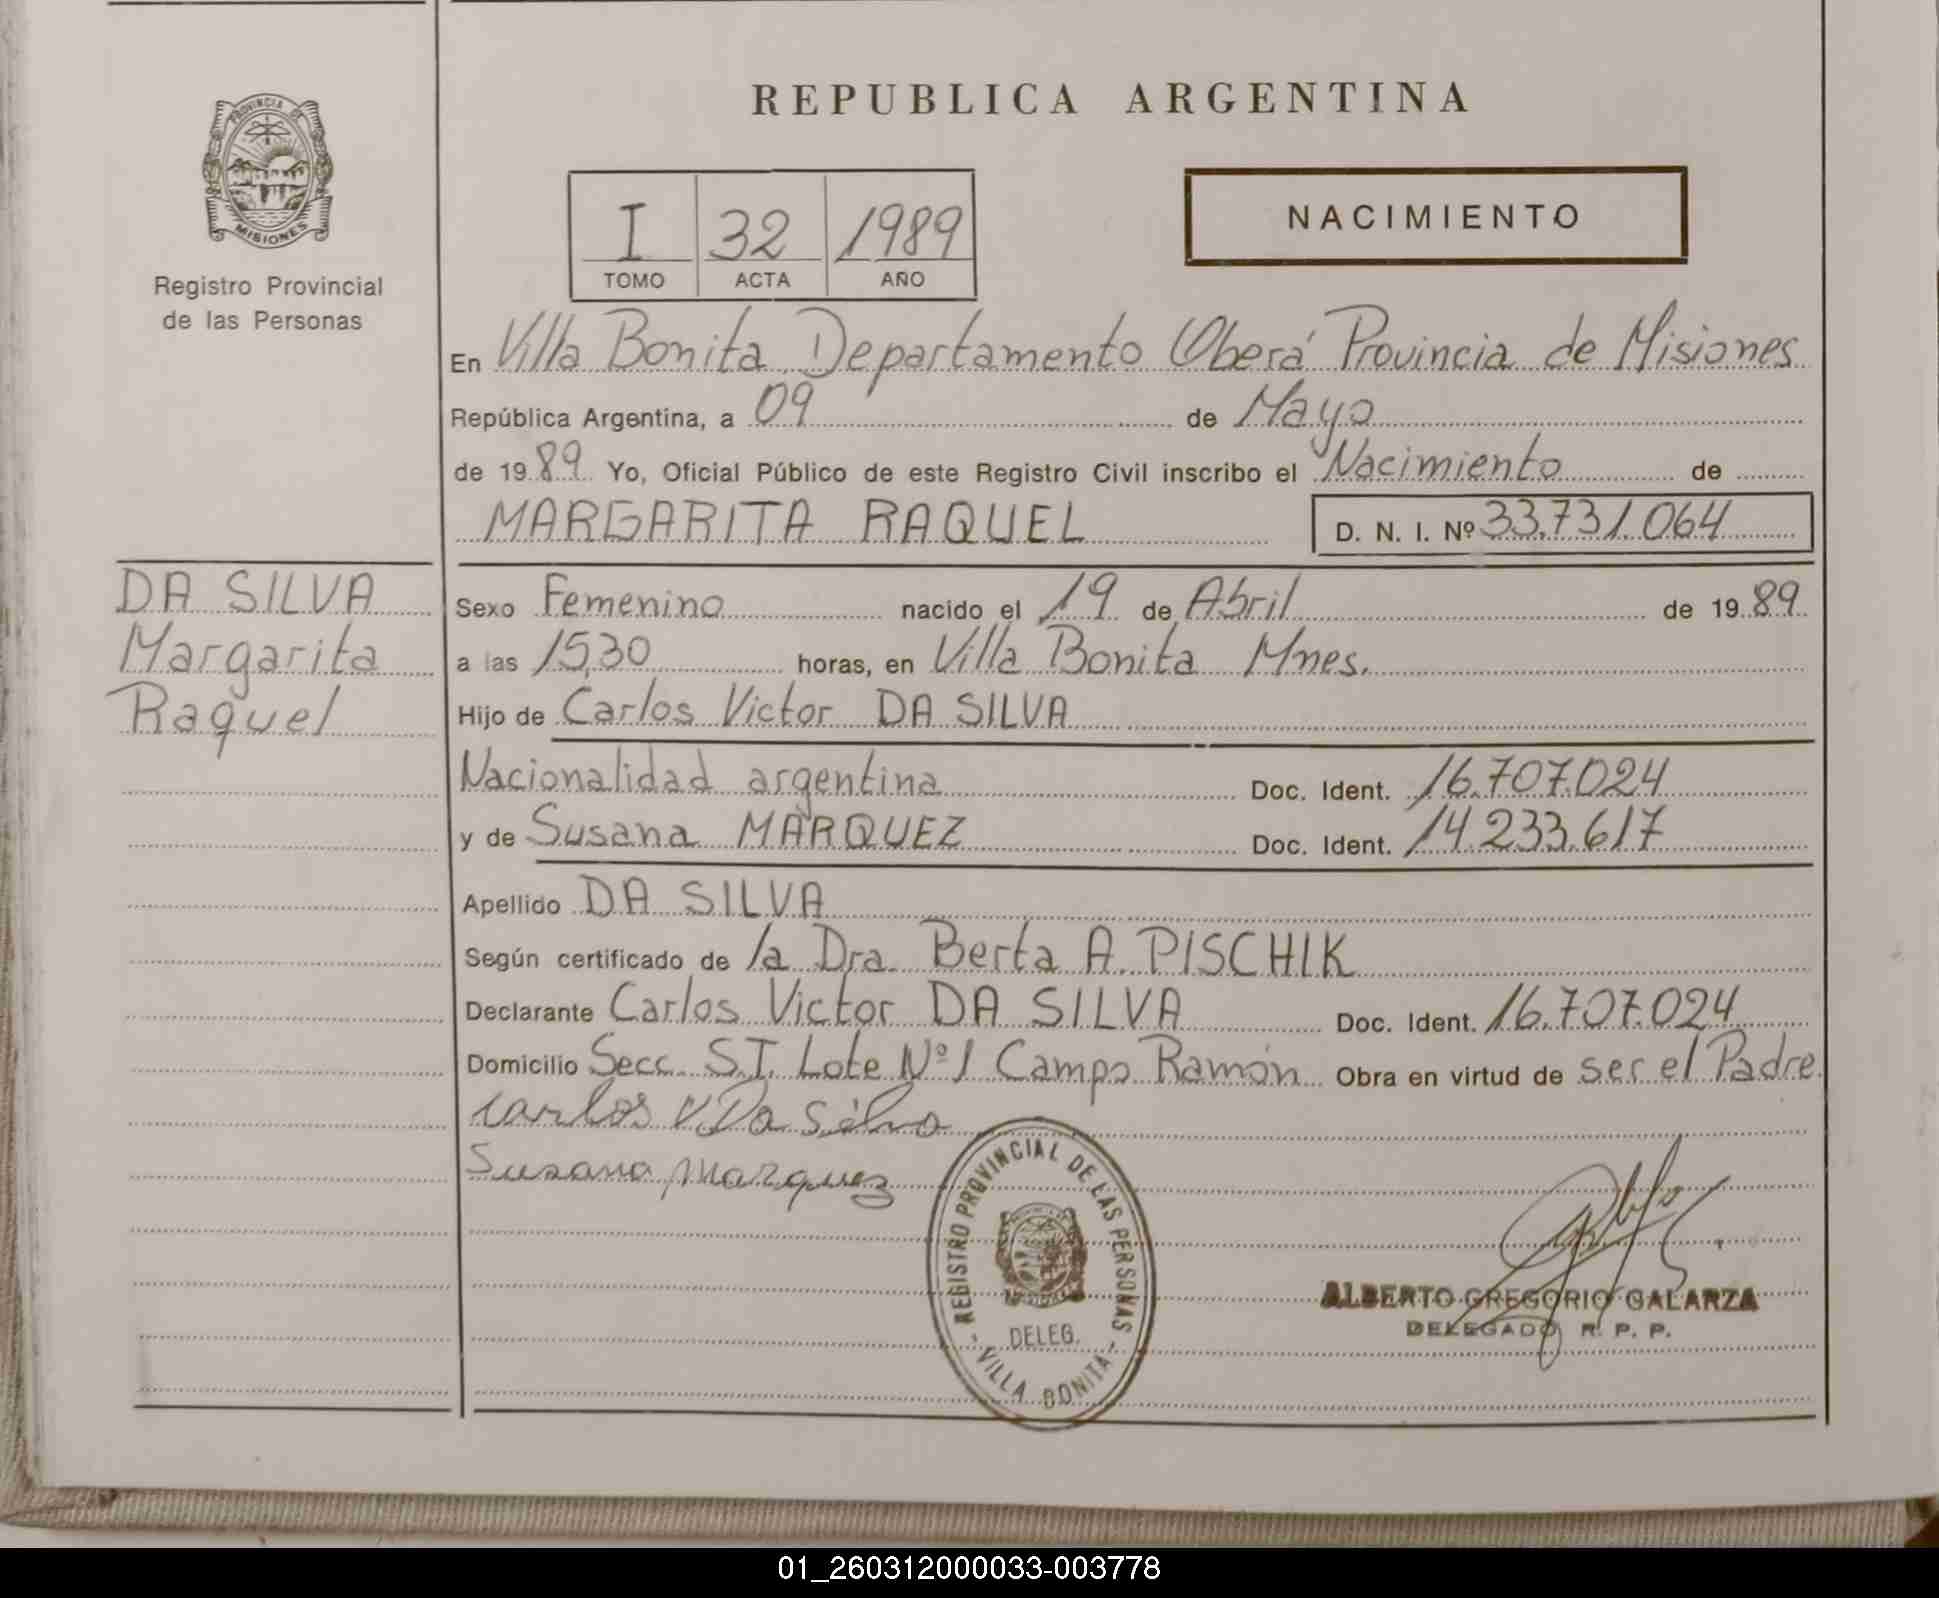 REPUBLICA ARGENTINA
PROVINCIA DE MISIONES
Registro Provincial
de las Personas
I 32 1989
TOMO ACTA AÑO
NACIMIENTO
En Villa Bonita, Departamento Oberá Provincia de Misiones
República Argentina, a 09 de Mayo
de 1989 Yo, Oficial Público de este Registro Civil inscribo el Nacimiento de
MARGARITA RAQUEL D. N. I. Nº 33.731.064
DA SILVA
Margarita
Raquel
Sexo Femenino nacido el 19 de Abril de 1989
a las 15,30 horas, en Villa Bonita Mnes.
Hijo de Carlos Victor DA SILVA
Nacionalidad argentina Doc. Ident. 16.707.024
y de Susana MARQUEZ Doc. Ident. 14.233.617
Apellido DA SILVA
Según certificado de la Dra. Berta A. PISCHIK
Declarante Carlos Victor DA SILVA Doc. Ident. 16.707.024
Domicilio Secc. S.I. Lote Nº 1 Campo Ramón Obra en virtud de ser el Padre
Carlos V Da Silva
Susana Marquez
REGISTRO PROVINCIAL DE LAS PERSONAS
DELEG.
- VILLA BONITA -
ALBERTO GREGORIO GALARZA
DELEGADO R. P. P.
01_260312000033-003778